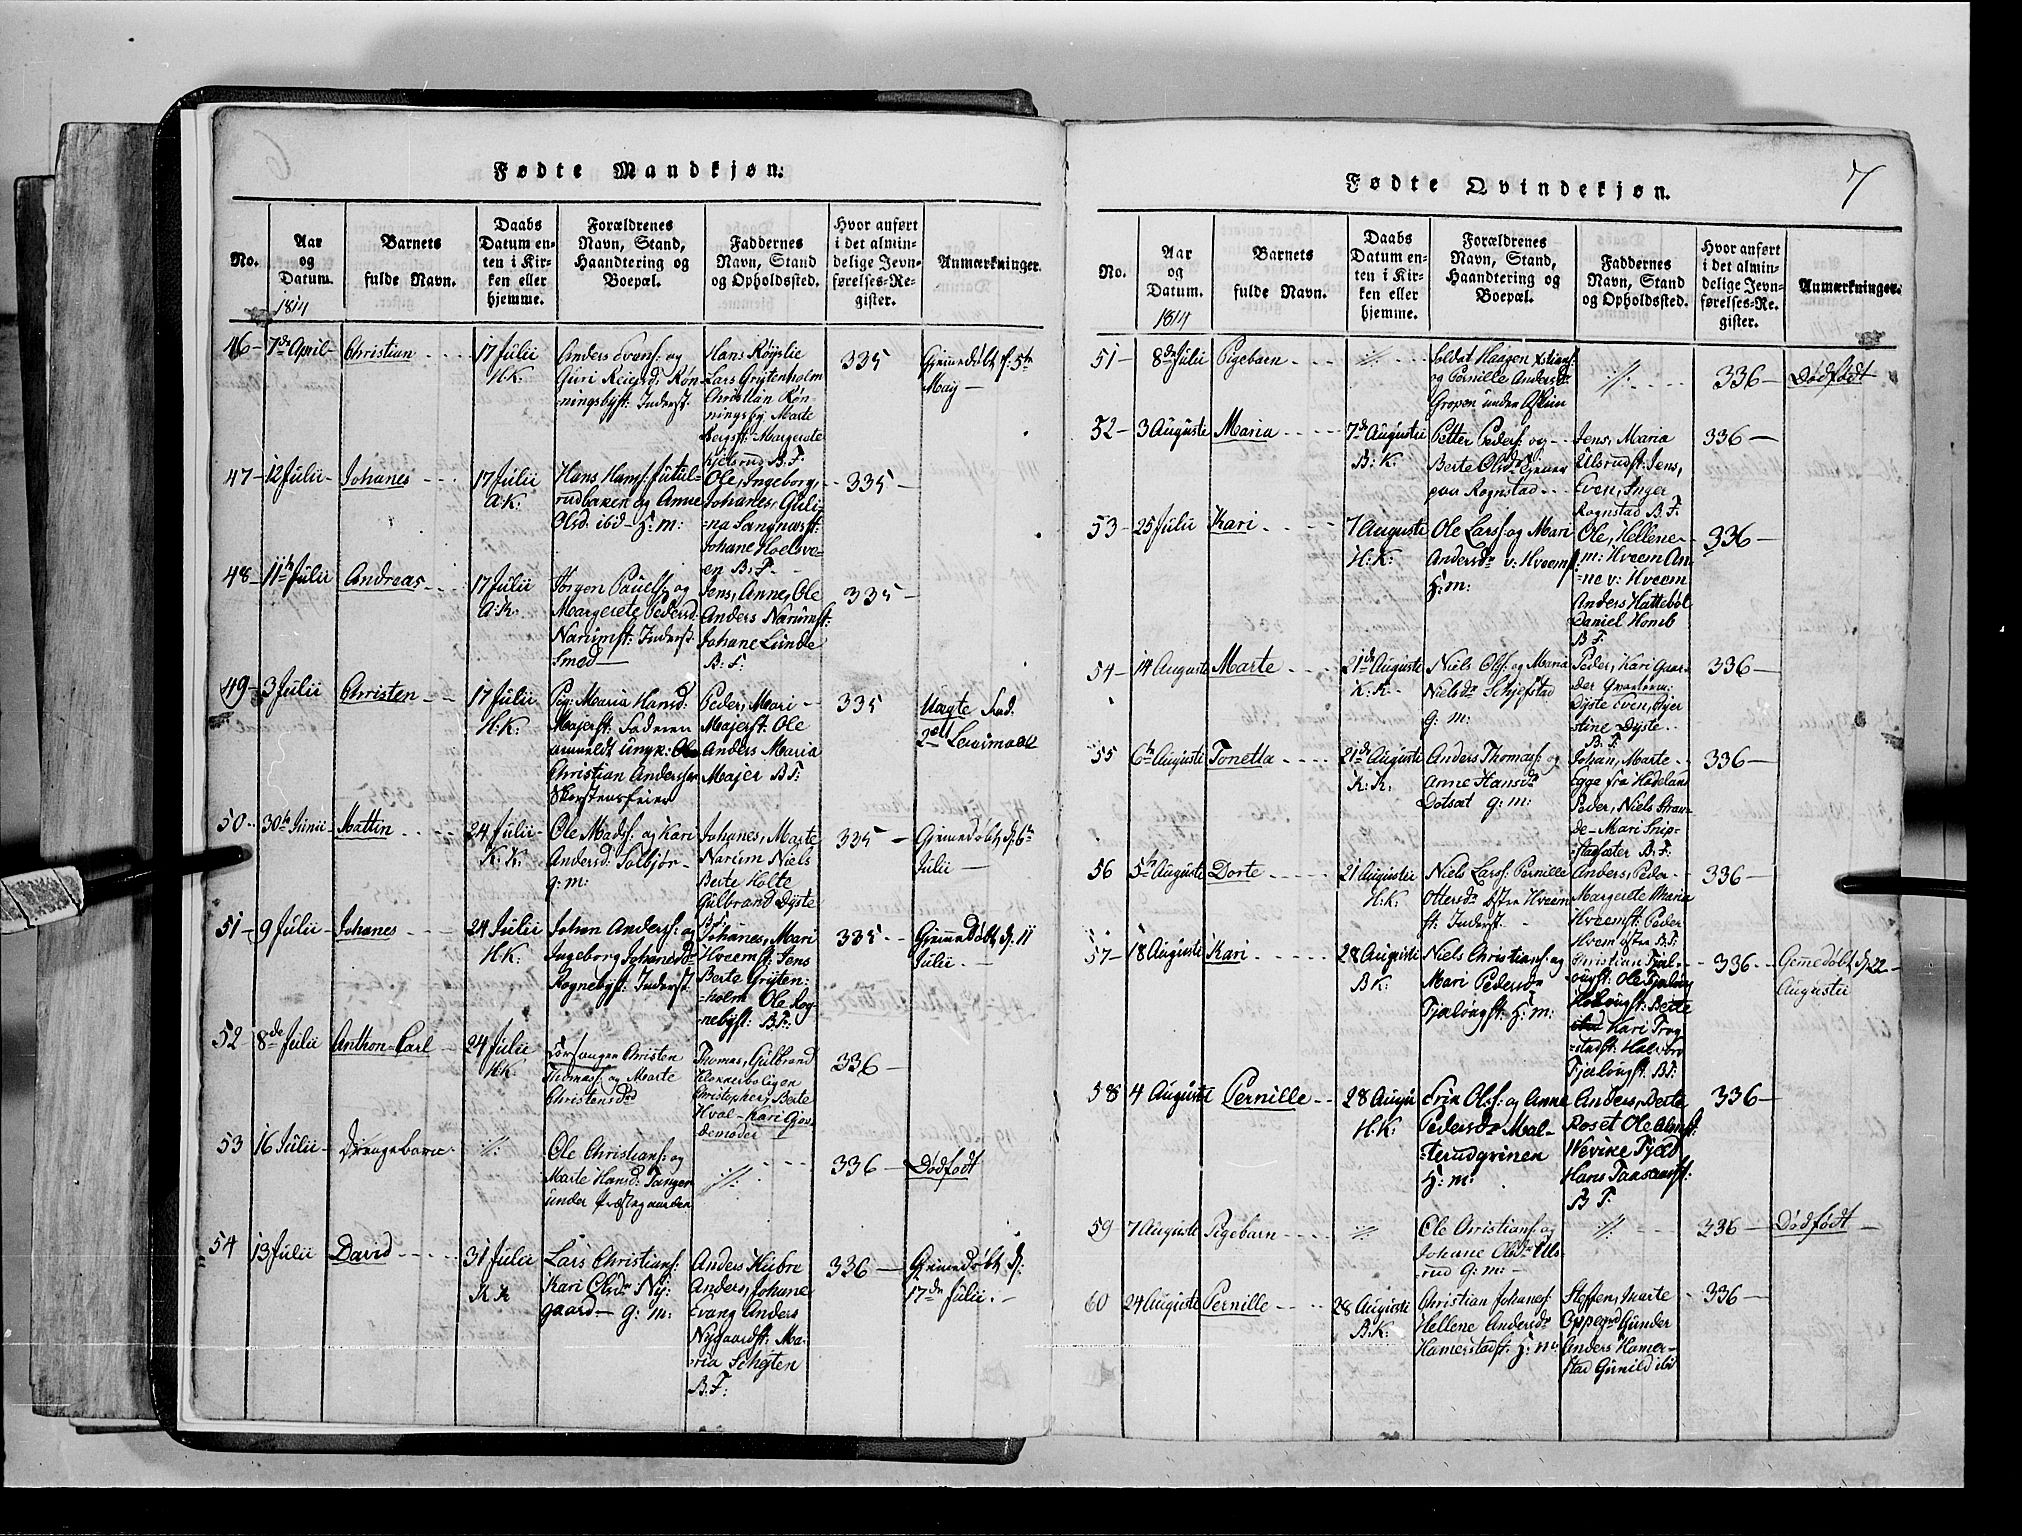 Fødte Mandkjøn.
No.
Aar
og
Datum.
1814
Barnets
fulde Navn.
Daabs
Datum en-
ten i Kir-
ken eller
hjemme.
Forældrenes
Navn, Stand,
Haandtering og
Boepæl.
Faddernes
Navn, Stand
og Opholdssted.
Hvor anført
i det almin-
delige Jevn-
førelses-Re-
gister.
Anmærkninger.
46 - 7de April - Christian
17 Julii
H.K.
Anders Evens: og
Guri Reiersd: Røn-
ningsbyst: Inderst
Hans Røyslie
Lars Grytenholm
Christian Røn-
ningsby Marte
Bergst: Margerete
Kjelsrud B.F.
335
Hiemedøbt d: 5te
Maij -
47 - 12 Julii - Johanes
17 Julii
A:K.
Hans Hans: Futul-
rudbaken og Anne
Olsd: ibid - H:m:
Ole, Ingeborg,
Johanes, Guli-
na Sangnæsst:
Johane Hoelsve-
en B.F.
335 -
48 - 11te Julii Andreas
17 Julii
A:K.
Jørgen Pauels: og
Margerete Pedersd:
Narumst: Inderst
Smed
Jens, Anne, Ole
Anders Narumst:
Johane Lunde
B.F.
335 -
49 - 3 Julii Christen
17 Julii
H.K.
Pig: Maria Hansd:
Majerst: Faderen
anmeldt Ungk: Ole
Christian Andersen
Skorstensfeier
Peder, Mari
Majerst: Ole
Anders Maria
Majer B.F:
335
Uægte Fød.
2det Leiermaal
50 - 30te Junii - Mattin
24 Julii -
K.K.
Ole Mads: og Kari
Andersd: Solbjør-
g:m:
Johanes, Marte
Narum Niels
Berte Holte
Gulbrand Dyste
B.F.
335 -
Hiemedøbt d: 6te
Julii -
51 - 9 Julii - Johanes
24 Julii
H.K.
Johan Anders: og
Ingeborg Johanesd:
Rognebyst: Inderst
Johanes, Mari
Hveemst: Jens
Berte Gryten-
holm Ole Rog-
nebyst: B.F.
335 -
Hiemedøbt d: 11
Julii -
52 8de Julii Anthon-Carl
24 Julii
H.K
Christen
Thomass: og Marte
Christensd
Thomas, Gulbrand
Klokkerboligen
Christopher, Berte
Hval - Kari Gjor-
demoder
336 -
53 16 Julii - Drengebarn
-//-
Ole Christians: og
Marte Hansd: Tangen
under Præstegaarden
-//-
336 -
Dødfødt
54 13 Julii David
31 Julii
K.K
Lars Christians:
Kari Olsdr Ny-
gaard - g:m:
Anders Hubre
Anders, Johane
Evang Anders
Nygaardst: Ma-
ria Schøten
B.F.
336 -
Hiemedøbt d:
17de Julii. -
7
Fødte Qvindekjøn.
No.
Aar
og
Datum.
1814
Barnets
fulde Navn.
Daabs
Datum en-
ten i Kir-
ken eller
hjemme.
Forældrenes
Navn, Stand,
Haandtering og
Boepæl.
Faddernes
Navn, Stand
og Opholdssted.
Hvor anført
i det almin-
delige Jevn-
førelses-Re-
gister.
Anmærkninger.
51 - 8de Julii Pigebarn
-//-
Soldat Haagen Xstians:
og Pernille Andersdr
Gropen under Askim
-//-
336 -
Dødfødt
52 - 3 Augusti Maria
7de Augusti
B:K:
Petter Peders: og
Berte Olsdr tjener
paa Rognstad
Jens, Maria
Ulsrudst: Jens,
Even, Inger
Rognstad B.F.
336 -
53 - 25 Julii Kari
7 Augusti
H.K:
Ole Lars: og Mari
Andersdr v: Hveemst
H:m:
Ole, Hellene
m: Hveem An-
ne v: Hveem
Anders Hattebøl
Daniel Honeb
B F.
336 -
54 - 14 Augusti Marte
21de Augusti
K.K.
Niels Ols: og Maria
Nielsdr Schjefstad
g:m:
Peder, Kari Gaar-
der
Dyste Even, Kjer-
stine Dyste
B.F.
336 -
55 6te Augusti Tonetta
21de Augusti
K.K.
Anders Thomas: og
Anne Hansdr
Dotsæt g:m:
Johan, Marte
Egge fra Hadeland
Peder, Niels Stran-
de - Mari Snip-
stadsæter B.F:
336 -
56 5te Augusti Dorte
21 Augusti
H.K:
Niels Lars: Pernille
Ottersdr østre Hveem
st: Inderst
Anders, Peder
Margerete Maria
Hveemst: Peder
Hvem østre B.F:
336 -
57 - 18 Augusti Kari
28 Augusti
B K:
Niels Christians: og
Mari Pedersdr
Fjælougst: H:m:
Christian Fjæl-
ougst: Ole Fjeloug
Houougst: Berte
Kari Frog-
stadst: Halvord
Fjælougst: B.F:
336 -
Hjemedøbt d: 22 -
Augusti
58 4 Augusti Pernille
28 Augu
H.K:
Erik Ols: og Anne
Pedersdr Mal-
terudgrinen
H:m:
Anders, Berte
Roset Ole Almst:
Wevike Fjæld
Hans Taasaaset:
B F.
336 -
59 7 Augusti Pigebarn
-//-
Ole Christians: og
Johane Olsdr Uls-
rud g:m: -
-//-
336 -
Dødfødt
60 24 Augusti Pernille
28 Augusti
B.K:
Christian Johanes:
Hellene Andersdr
Hamerstadst: H:m:
Steffen, Marte
Oppegrd Gunder
Anders Hamer-
stad Gunild ibd
336 -